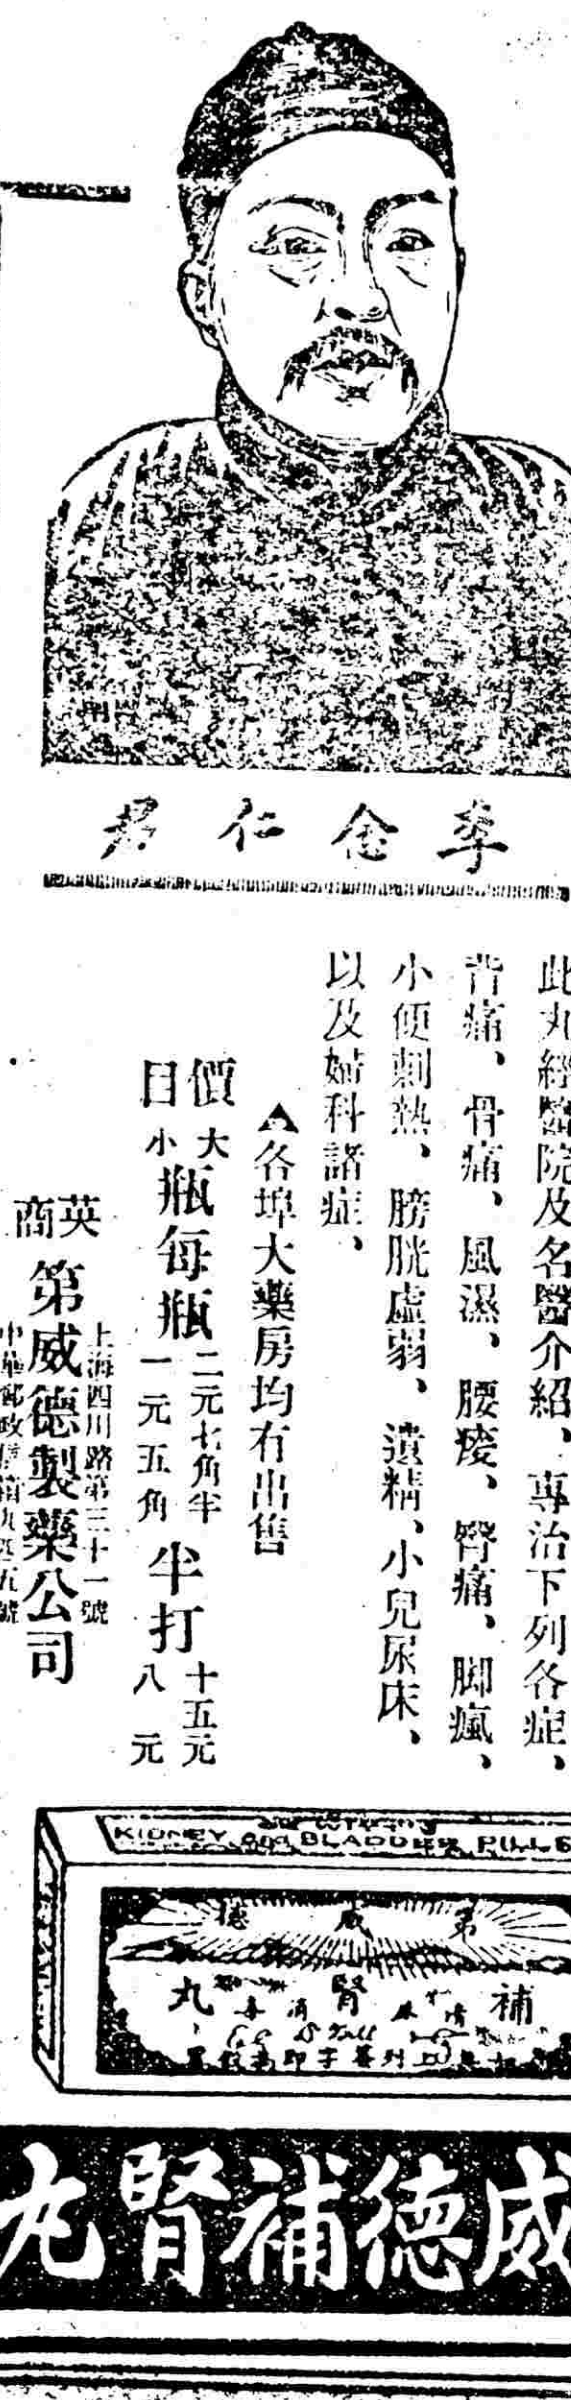 李念仁君
此丸經醫院及名醫介紹、專治下列各症、
背痛、骨痛、風濕、腰痠、臀痛、脚瘋、
小便刺熱、膀胱虛弱、遺精、小兒尿床、
以及婦科諸症、
▲各埠大藥房均有出售
價目
大瓶每瓶二元七角半 半打十五元
小瓶每瓶一元五角 半打八元
上海四川路第三十一號
英商第威德製藥公司
中華郵政信箱九五號
KIDNEY and BLADDER PILLS
第威德
補腎丸
威德補腎丸